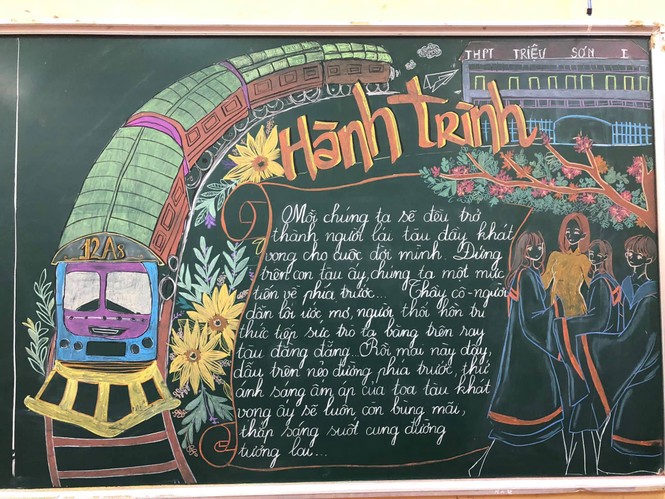 THPT TRIỆU SƠN I
Hành Trình
12A8
Mỗi chúng ta sẽ đều trở
thành người lái tàu đầy khát
vọng cho cuộc đời mình. Đứng
trên con tàu ấy, chúng ta một mực
tiến về phía trước... Thầy cô-người
dẫn lối ước mơ, người thổi hồn tri
thức tiếp sức trò ta băng trên ray
tàu đằng đẵng... Rồi mai này đây,
dẫu trên nẻo đường phía trước, thứ
ánh sáng ấm áp của toa tàu khát
vọng ấy sẽ luôn còn bừng mãi,
thắp sáng suốt cung đường
tương lai...